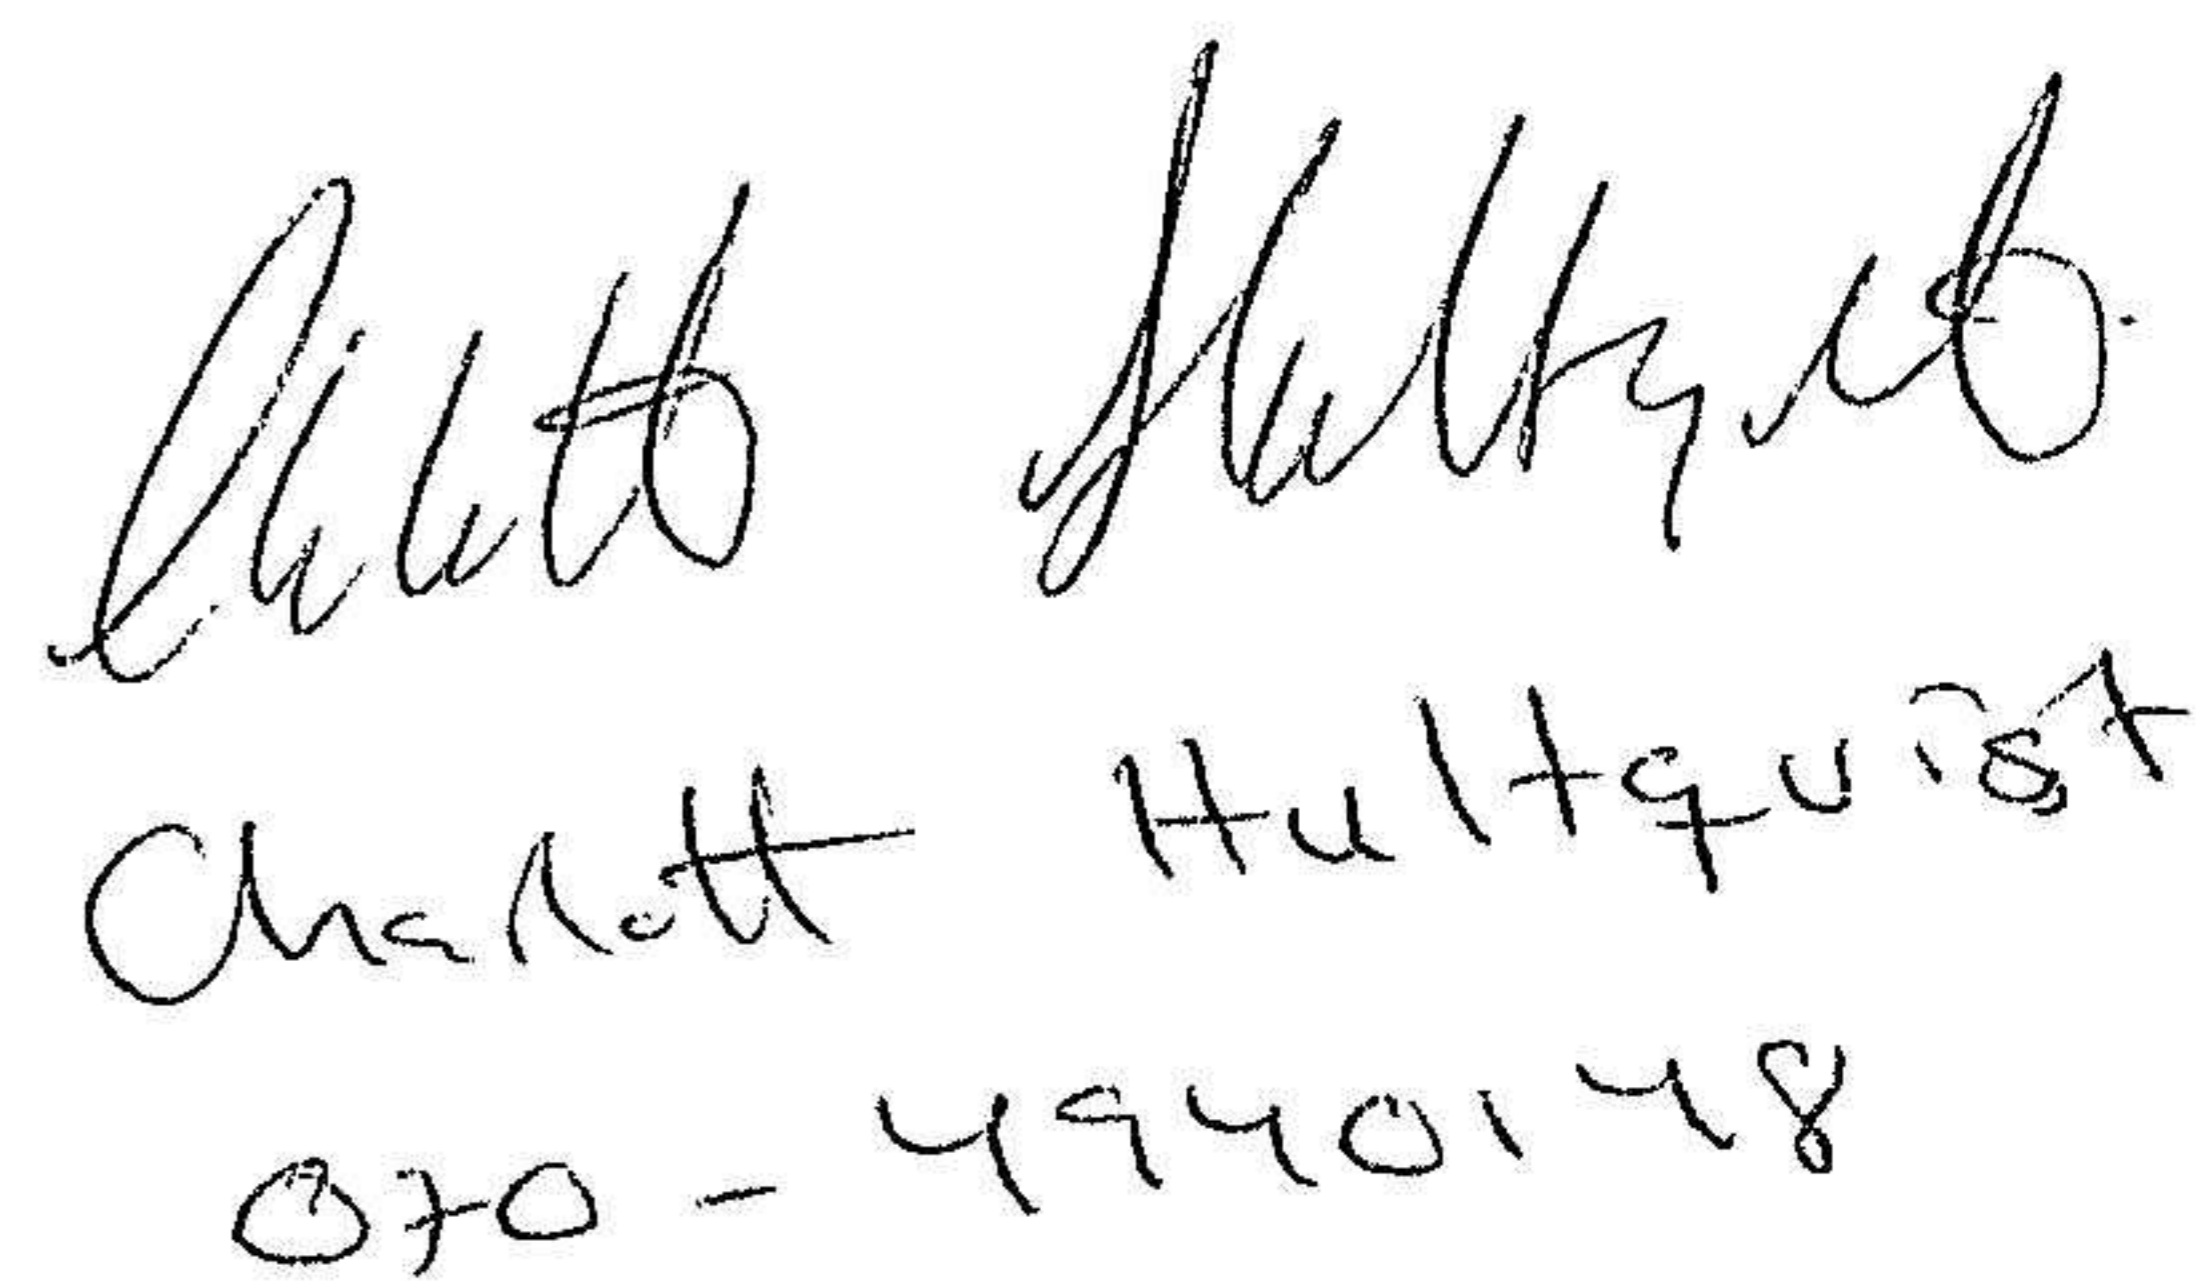 Charlott Hultquist
Charlott Hultquist
070 - 4940148